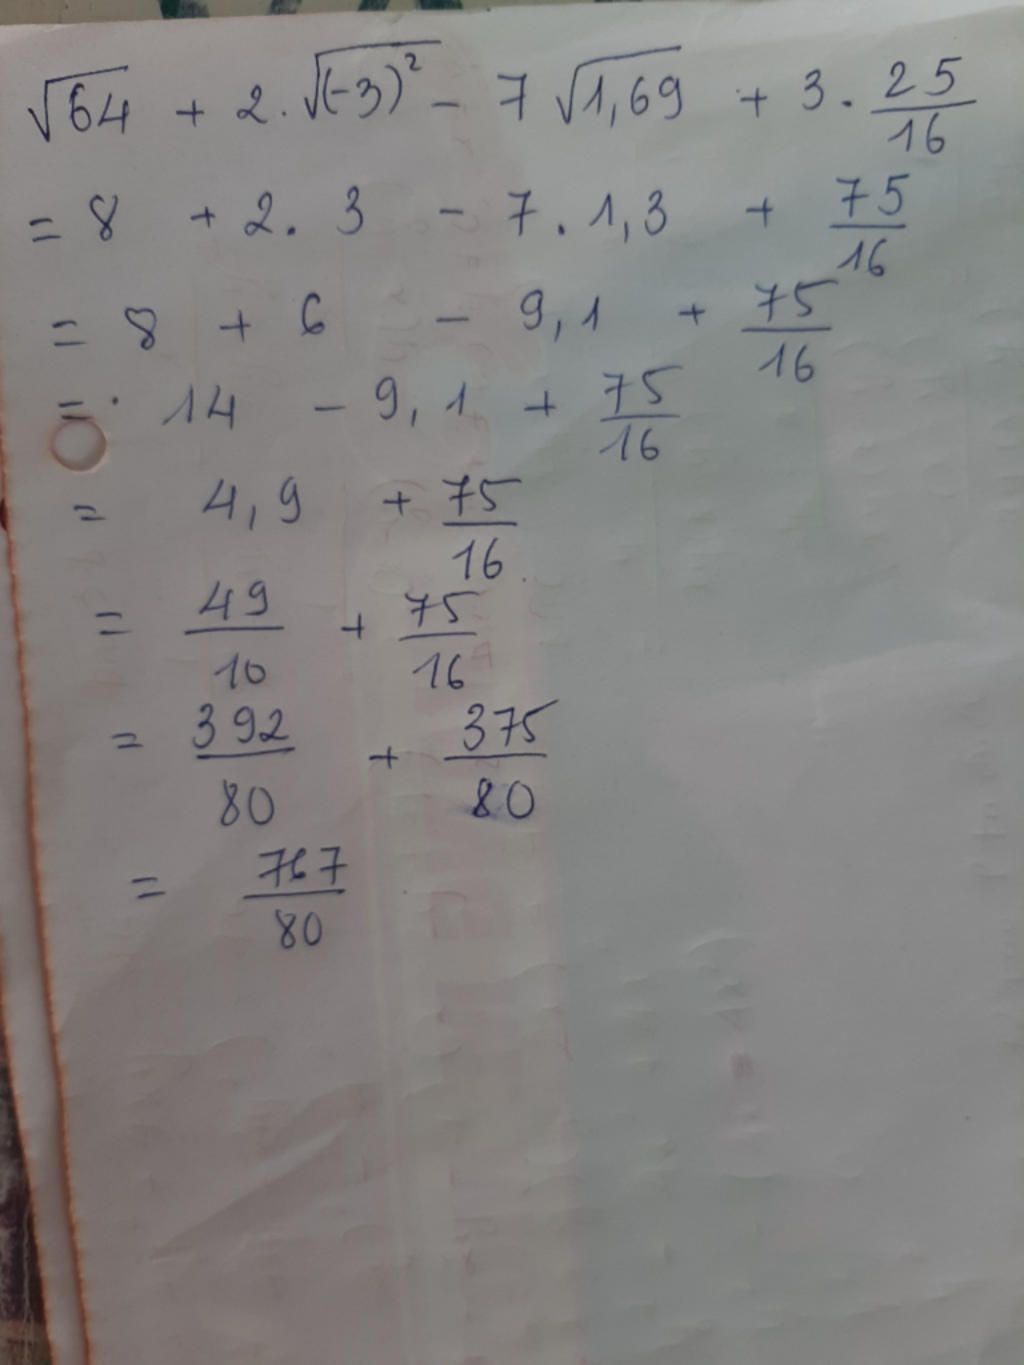 √64 + 2.√(-3)² - 7√1,69 + 3. 25/16
= 8 + 2. 3 - 7. 1,3 + 75/16
= 8 + 6 - 9,1 + 75/16
= 14 - 9,1 + 75/16
= 4,9 + 75/16
= 49/10 + 75/16
= 392/80 + 375/80
= 767/80